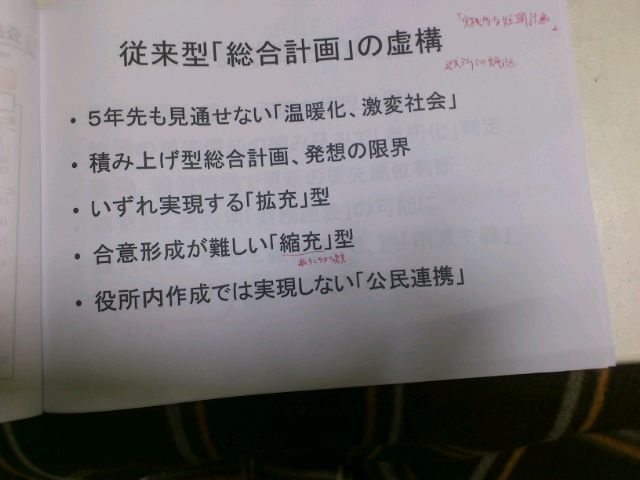 従来型「総合計画」の虚構
・５年先も見通せない「温暖化、激変社会」
・積み上げ型総合計画、発想の限界
・いずれ実現する「拡充」型
・合意形成が難しい「縮充」型
・役所内作成では実現しない「公民連携」